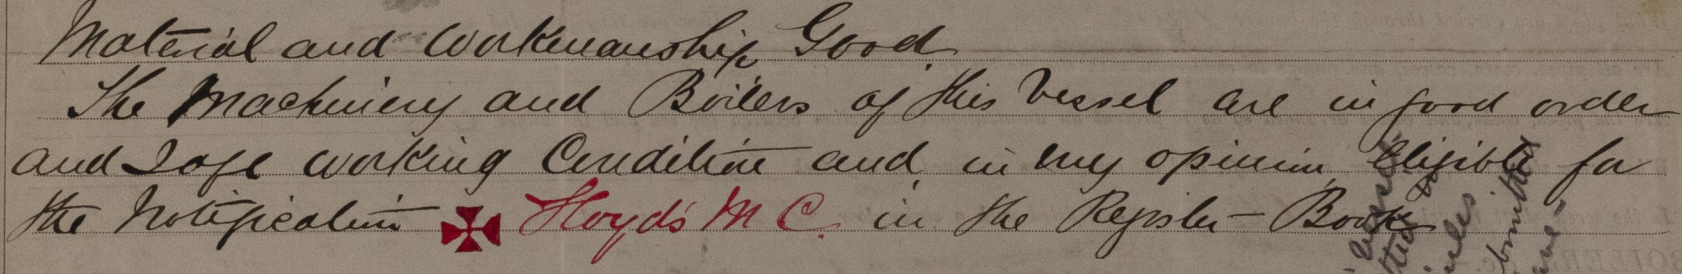 Material and Workmanship Good.
The Machinery and Boilers of this Vessel are in good order
and Safe working Condition and in my opinion Eligible for
the Notification ✠ Lloyds M C. in the Register-Book